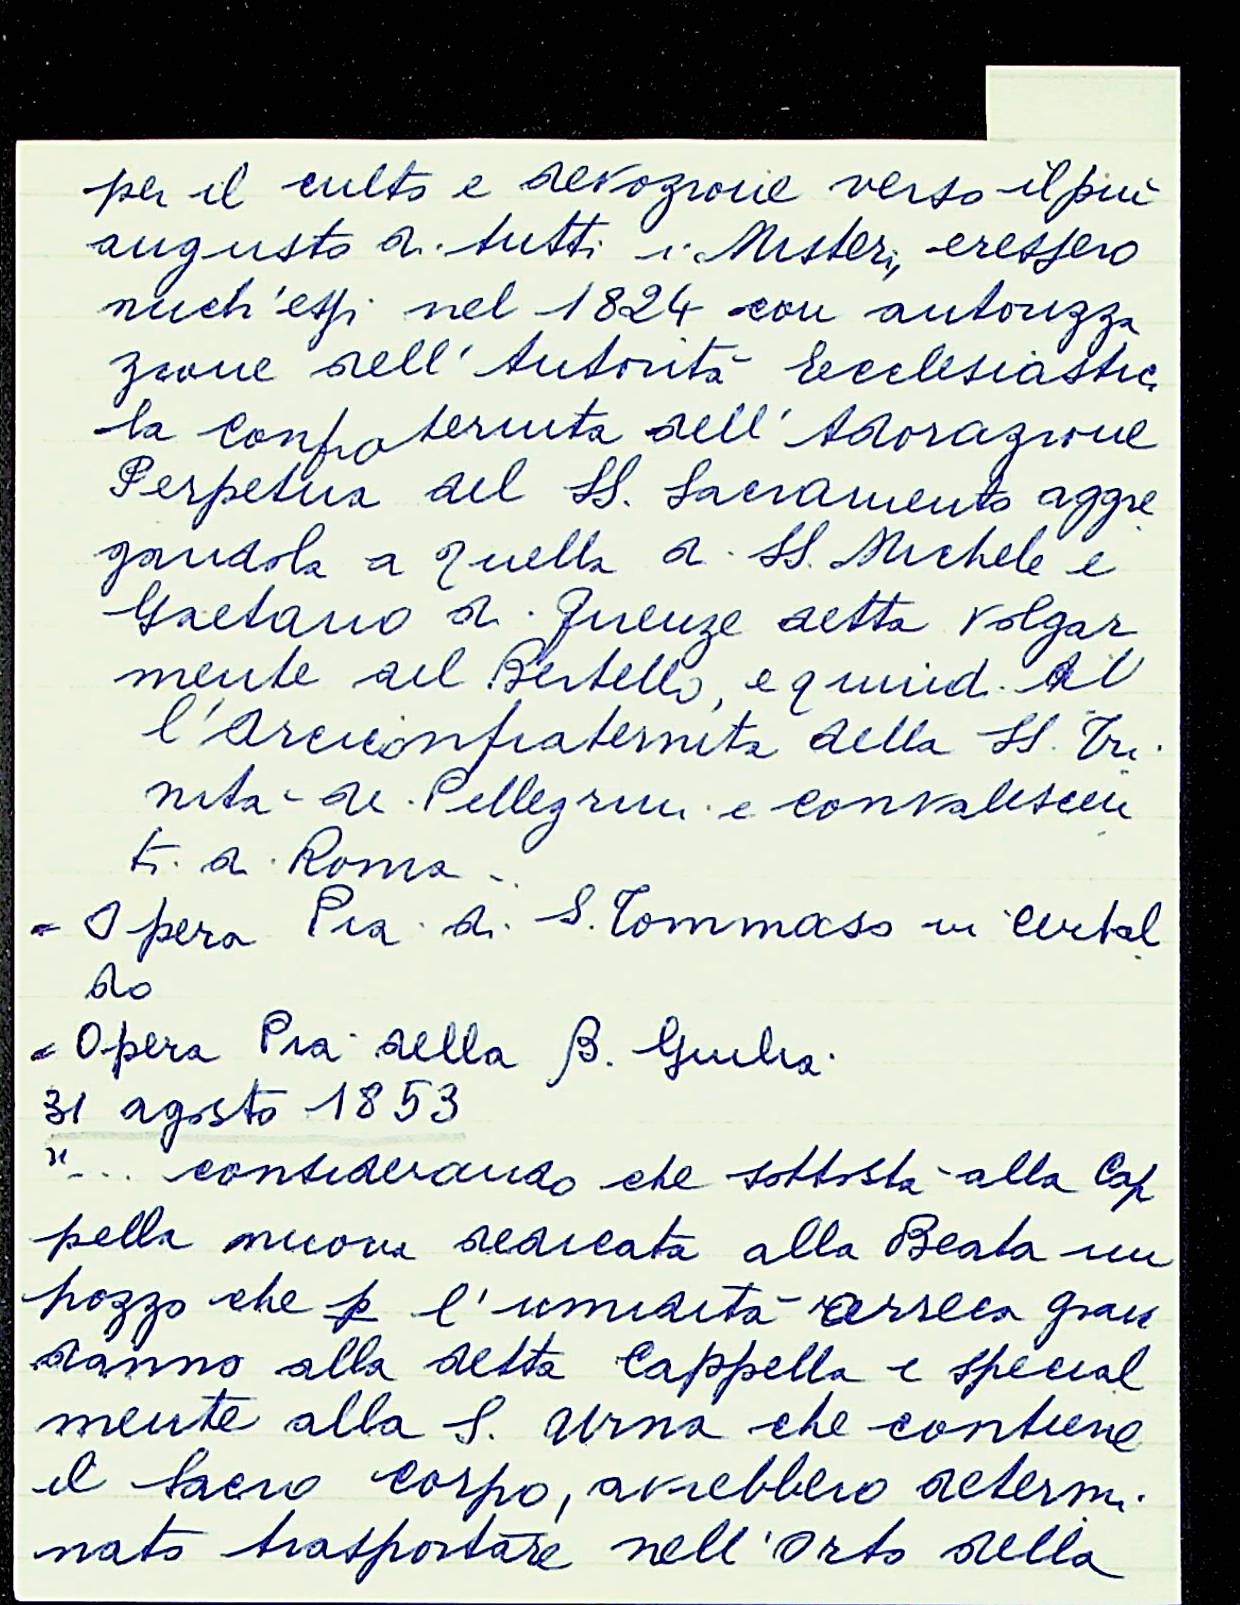 per il culto e devozione verso il più
augusto di tutti i Misteri, eressero
anch'essi nel 1824 con autorizza
zione dell'Autorità Ecclesiastica
la Confraternita dell'Adorazione
Perpetua del SS. Sacramento aggre
gandola a quella di SS. Michele e
Gaetano di Firenze detta volgar
mente del Bertello, e quindi al
l'Arciconfraternita della SS. Tri
nità de Pellegrini e convalescen
ti di Roma.
- Opera Pia di S. Tommaso in Certal
do
- Opera Pia della B. Giulia.
31 agosto 1853
"... considerando che sottostà alla Cap
pella nuova dedicata alla Beata un
pozzo che p l'umidità arreca gran
danno alla detta Cappella e special
mente alla S. Urna che contiene
il Sacro corpo, avrebbero determi
nato trasportare nell'Orto della